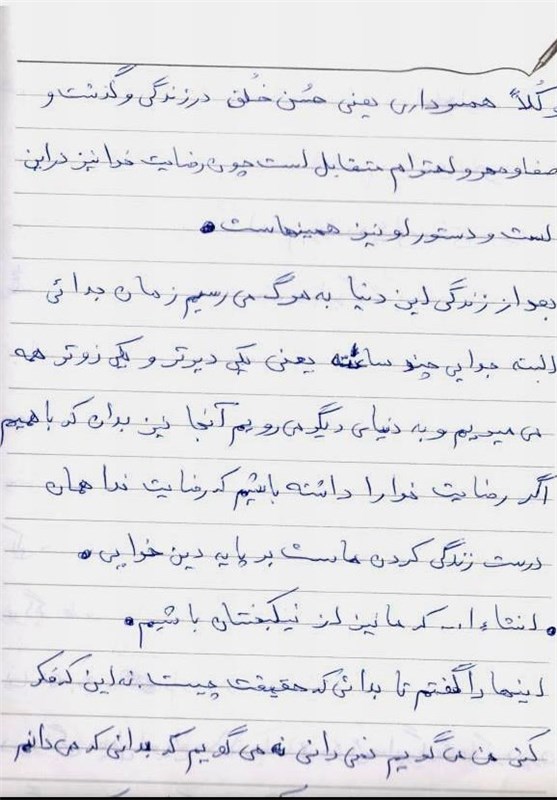 و کُلاً همسرداری یعنی حُسن خُلق در زندگی و گذشت و
صفا و مهر و احترام متقابل است چون رضایت خدا نیز در این
است و دستور او نیز همینهاست.
بعد از زندگی این دنیا به مرگ می رسیم زمان جدائی
البته جدایی چند ساعته یعنی یکی دیرتر و یکی زوتر همه
می میریم و به دنیای دیگر می رویم آنجا نیز بدان که باهمیم
اگر رضایت خدا را داشته باشیم که رضایت خدا همان
درست زندگی کردن ماست بر پایه دین خدایی.
انشاء ا... که ما نیز از نیکبختان باشیم.
اینها را گفتم تا بدانی که حقیقت چیست. نه این که فکر
کنی من می گویم نمی دانی نه می گویم که بدانی که می دانم